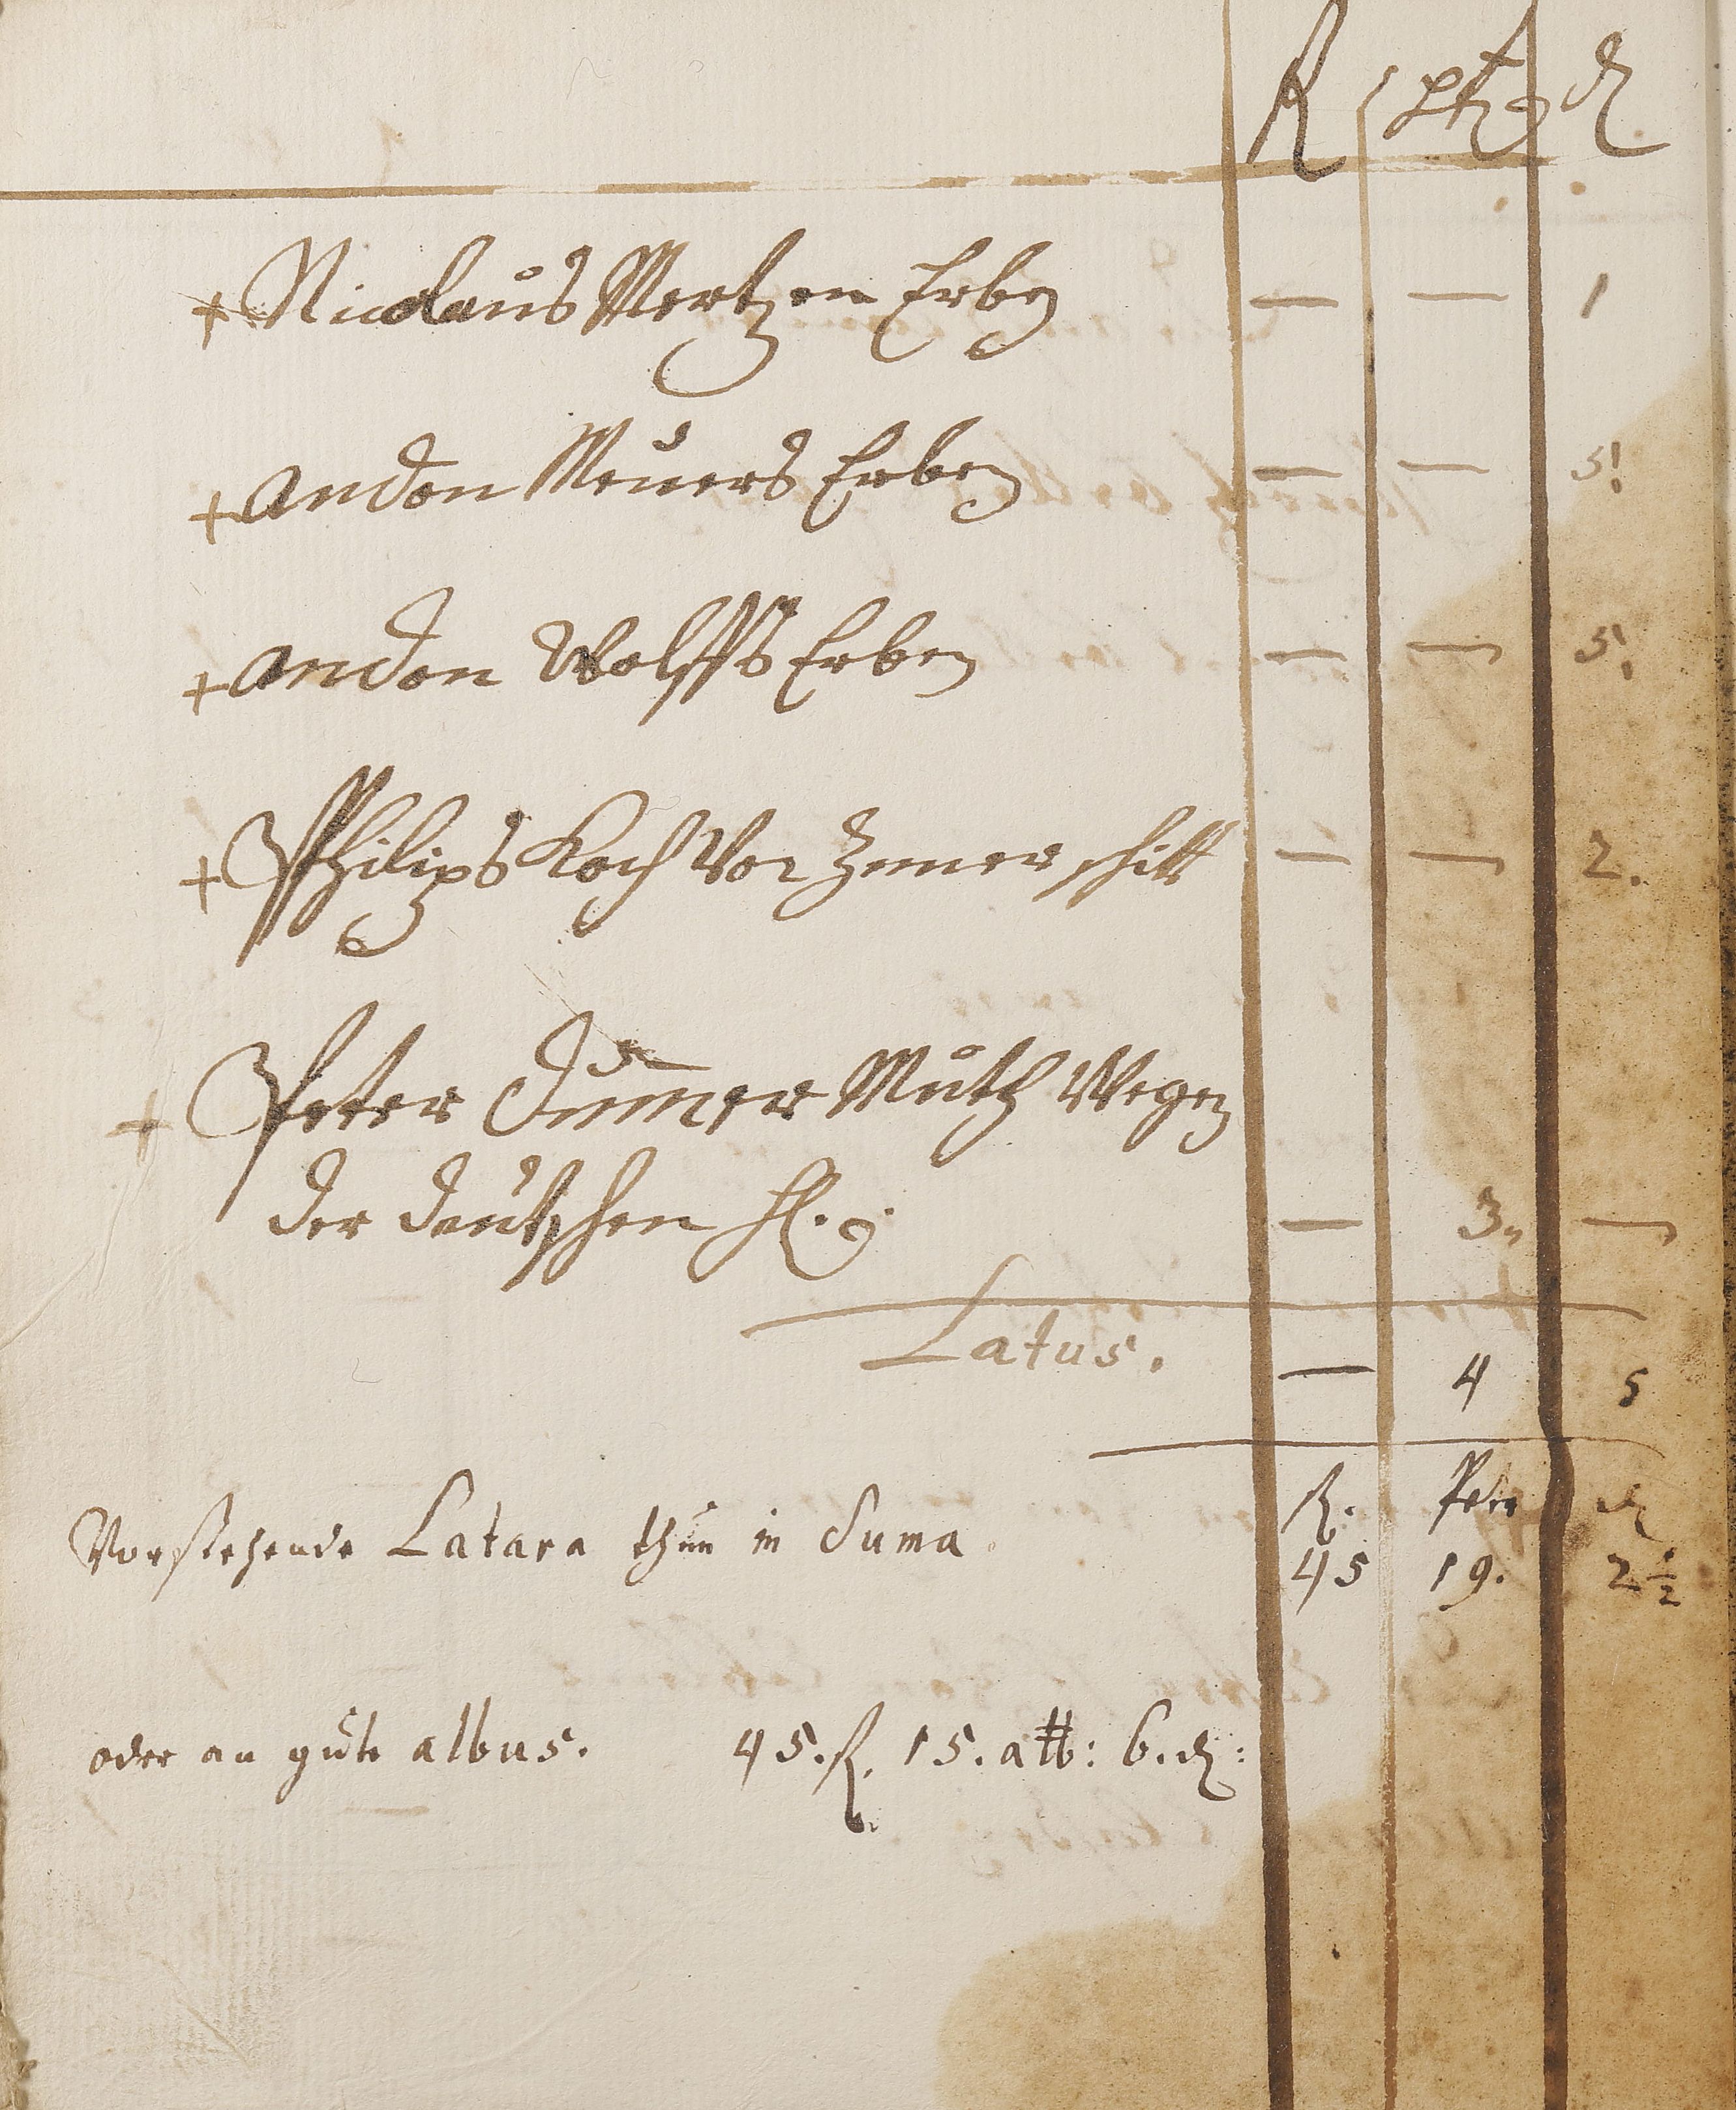 R ptr d
+ Nicolaus Mertzen Erben — — 1
+ Andon Meuers Erben — — 5!
+ Andon Wolffs Erben — — 5!
+ Philips Koch Vor Zemer schitt — — 2.
+ Peter Dummer Muth Wegen
der deutschen H. — 3. —
Latus. — 4 5
R. Petr d
Vorstehende Latara thun in Suma 45 19. 2 1/2
oder an gute albus. 45. R. 15. alb: 6. d: